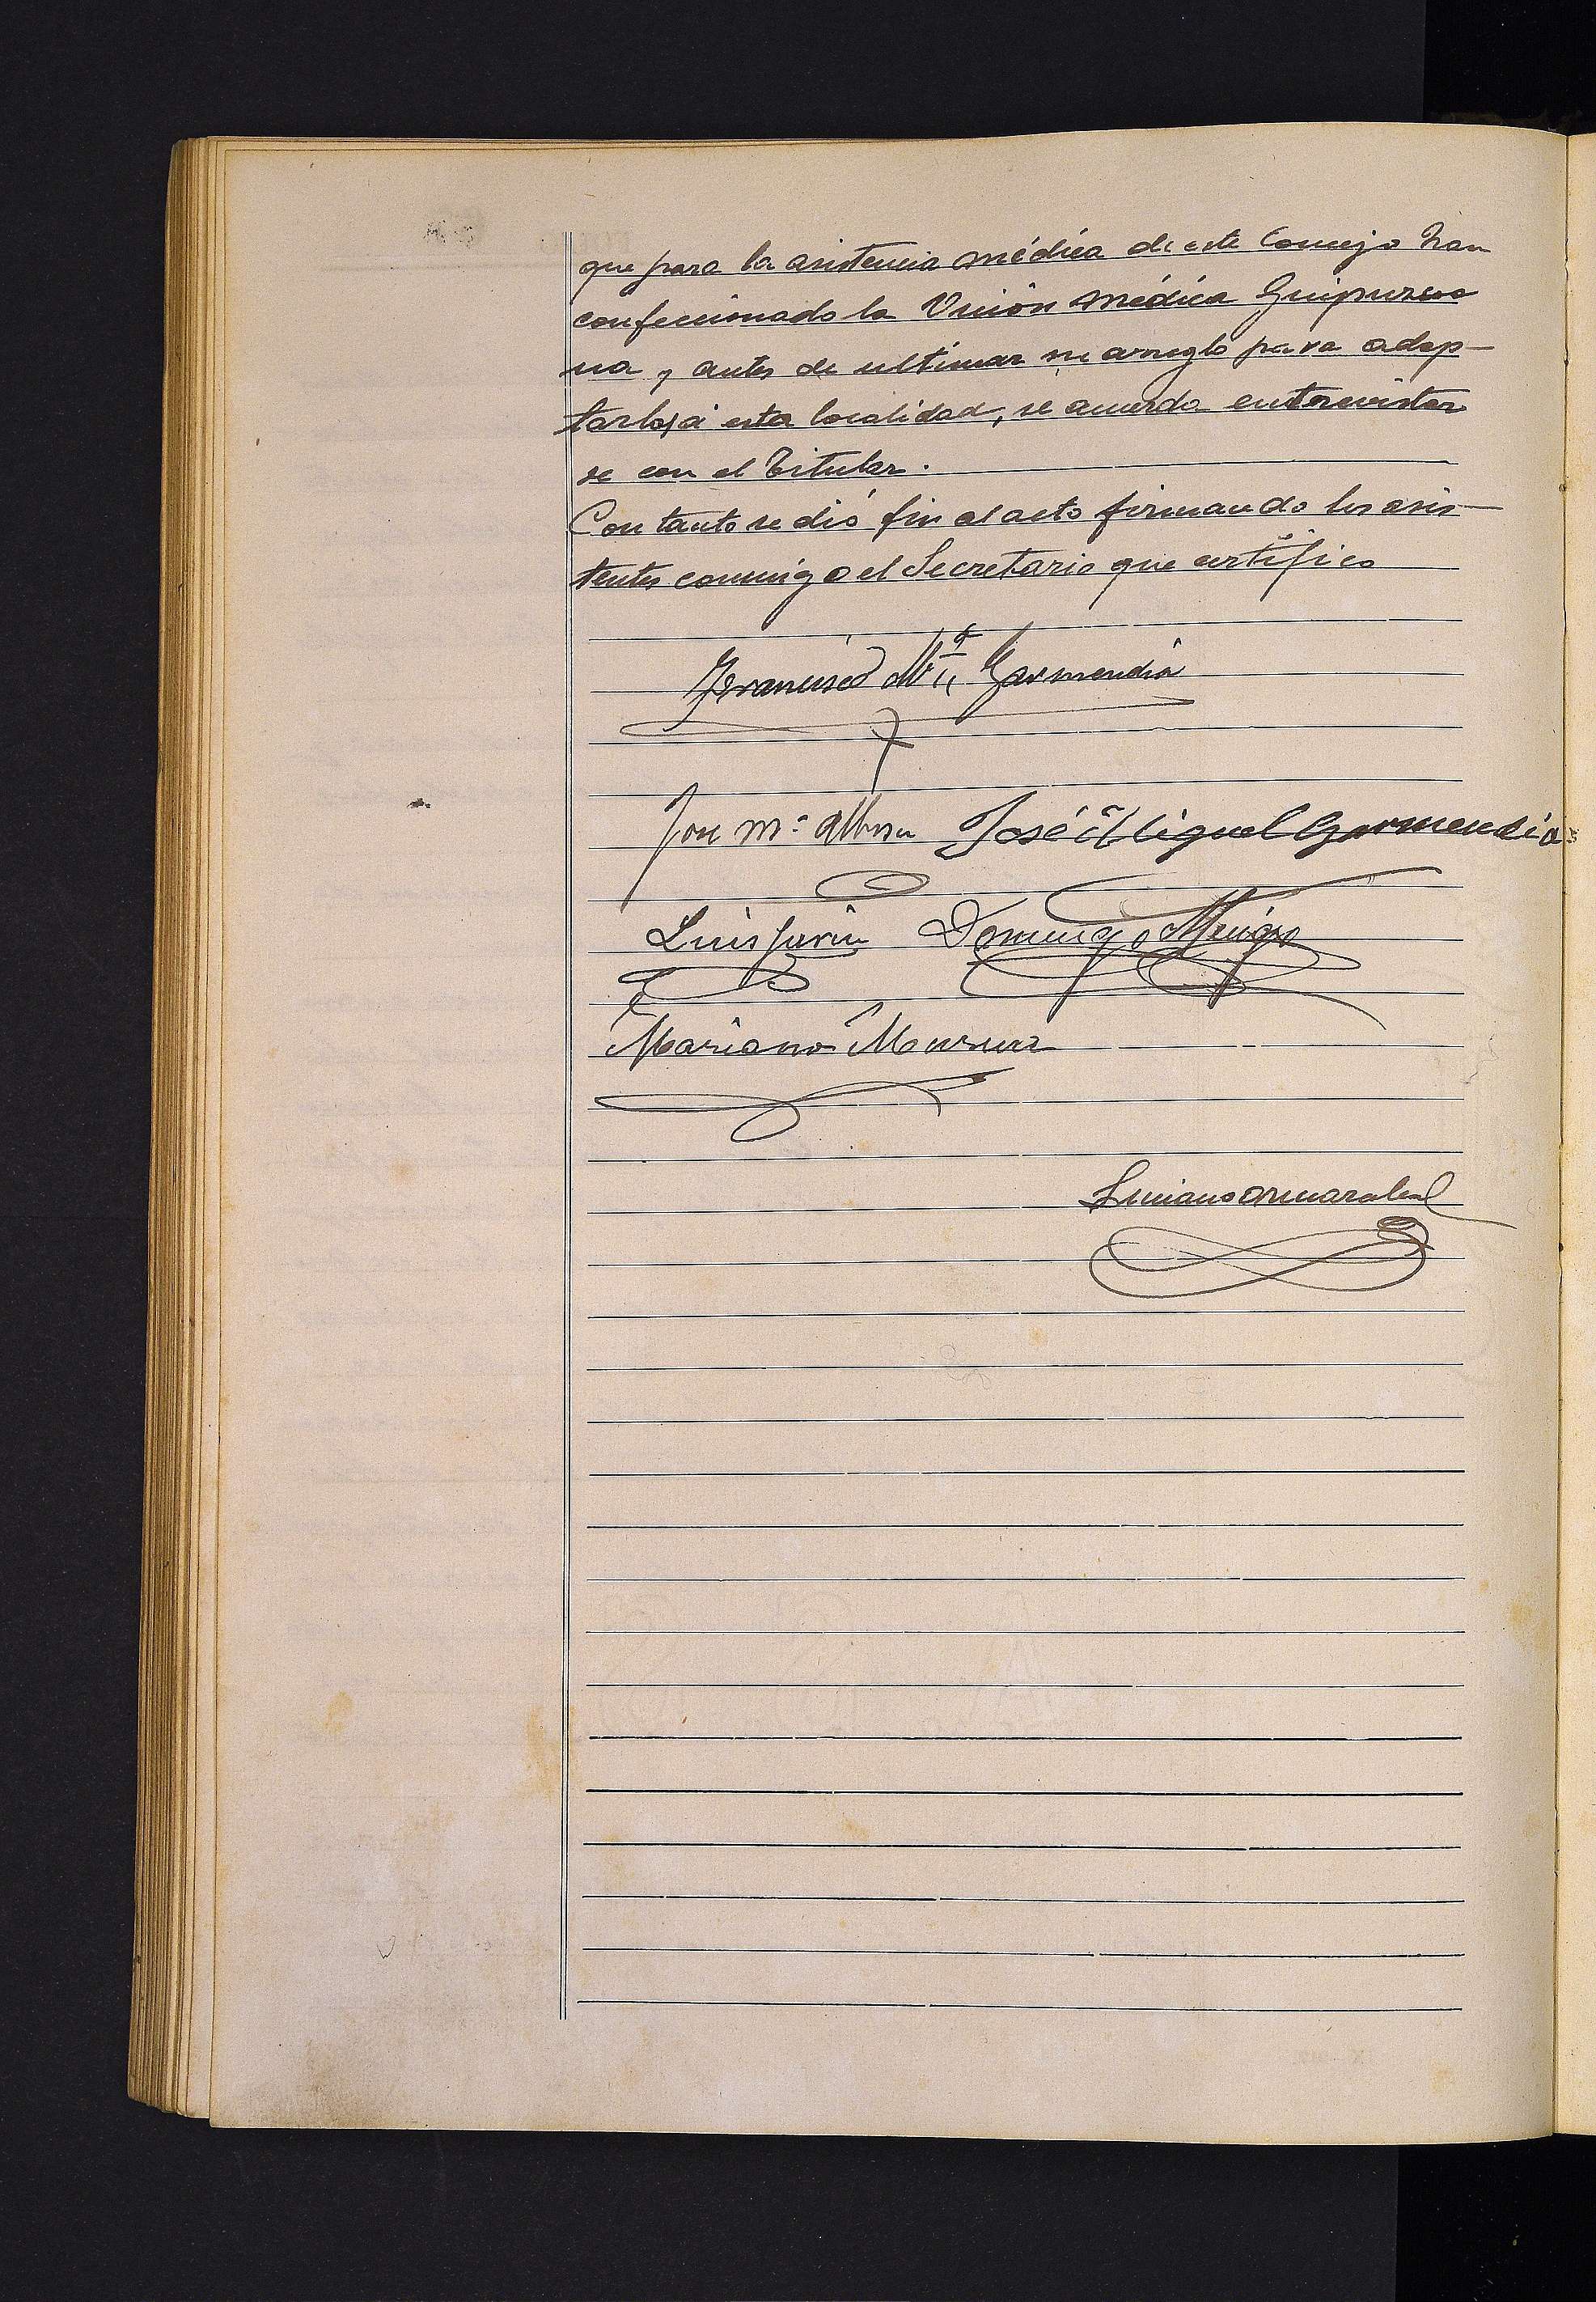 que para la asistencia médica de este Concejo han
confeccionado la Unión Médica Guipuzcoa
na y antes de ultimar su arreglo para adap-
tarlos á esta localidad, se acuerda entrevistar
se con el Titular.
Con tanto se dió fin al acto firmando los asis-
tentes conmigo el Secretario que certifico
Francisco Mª Garmendia
Jose Mª José Miguel Garmendia
Luis Domingo
Mariano
Luciano